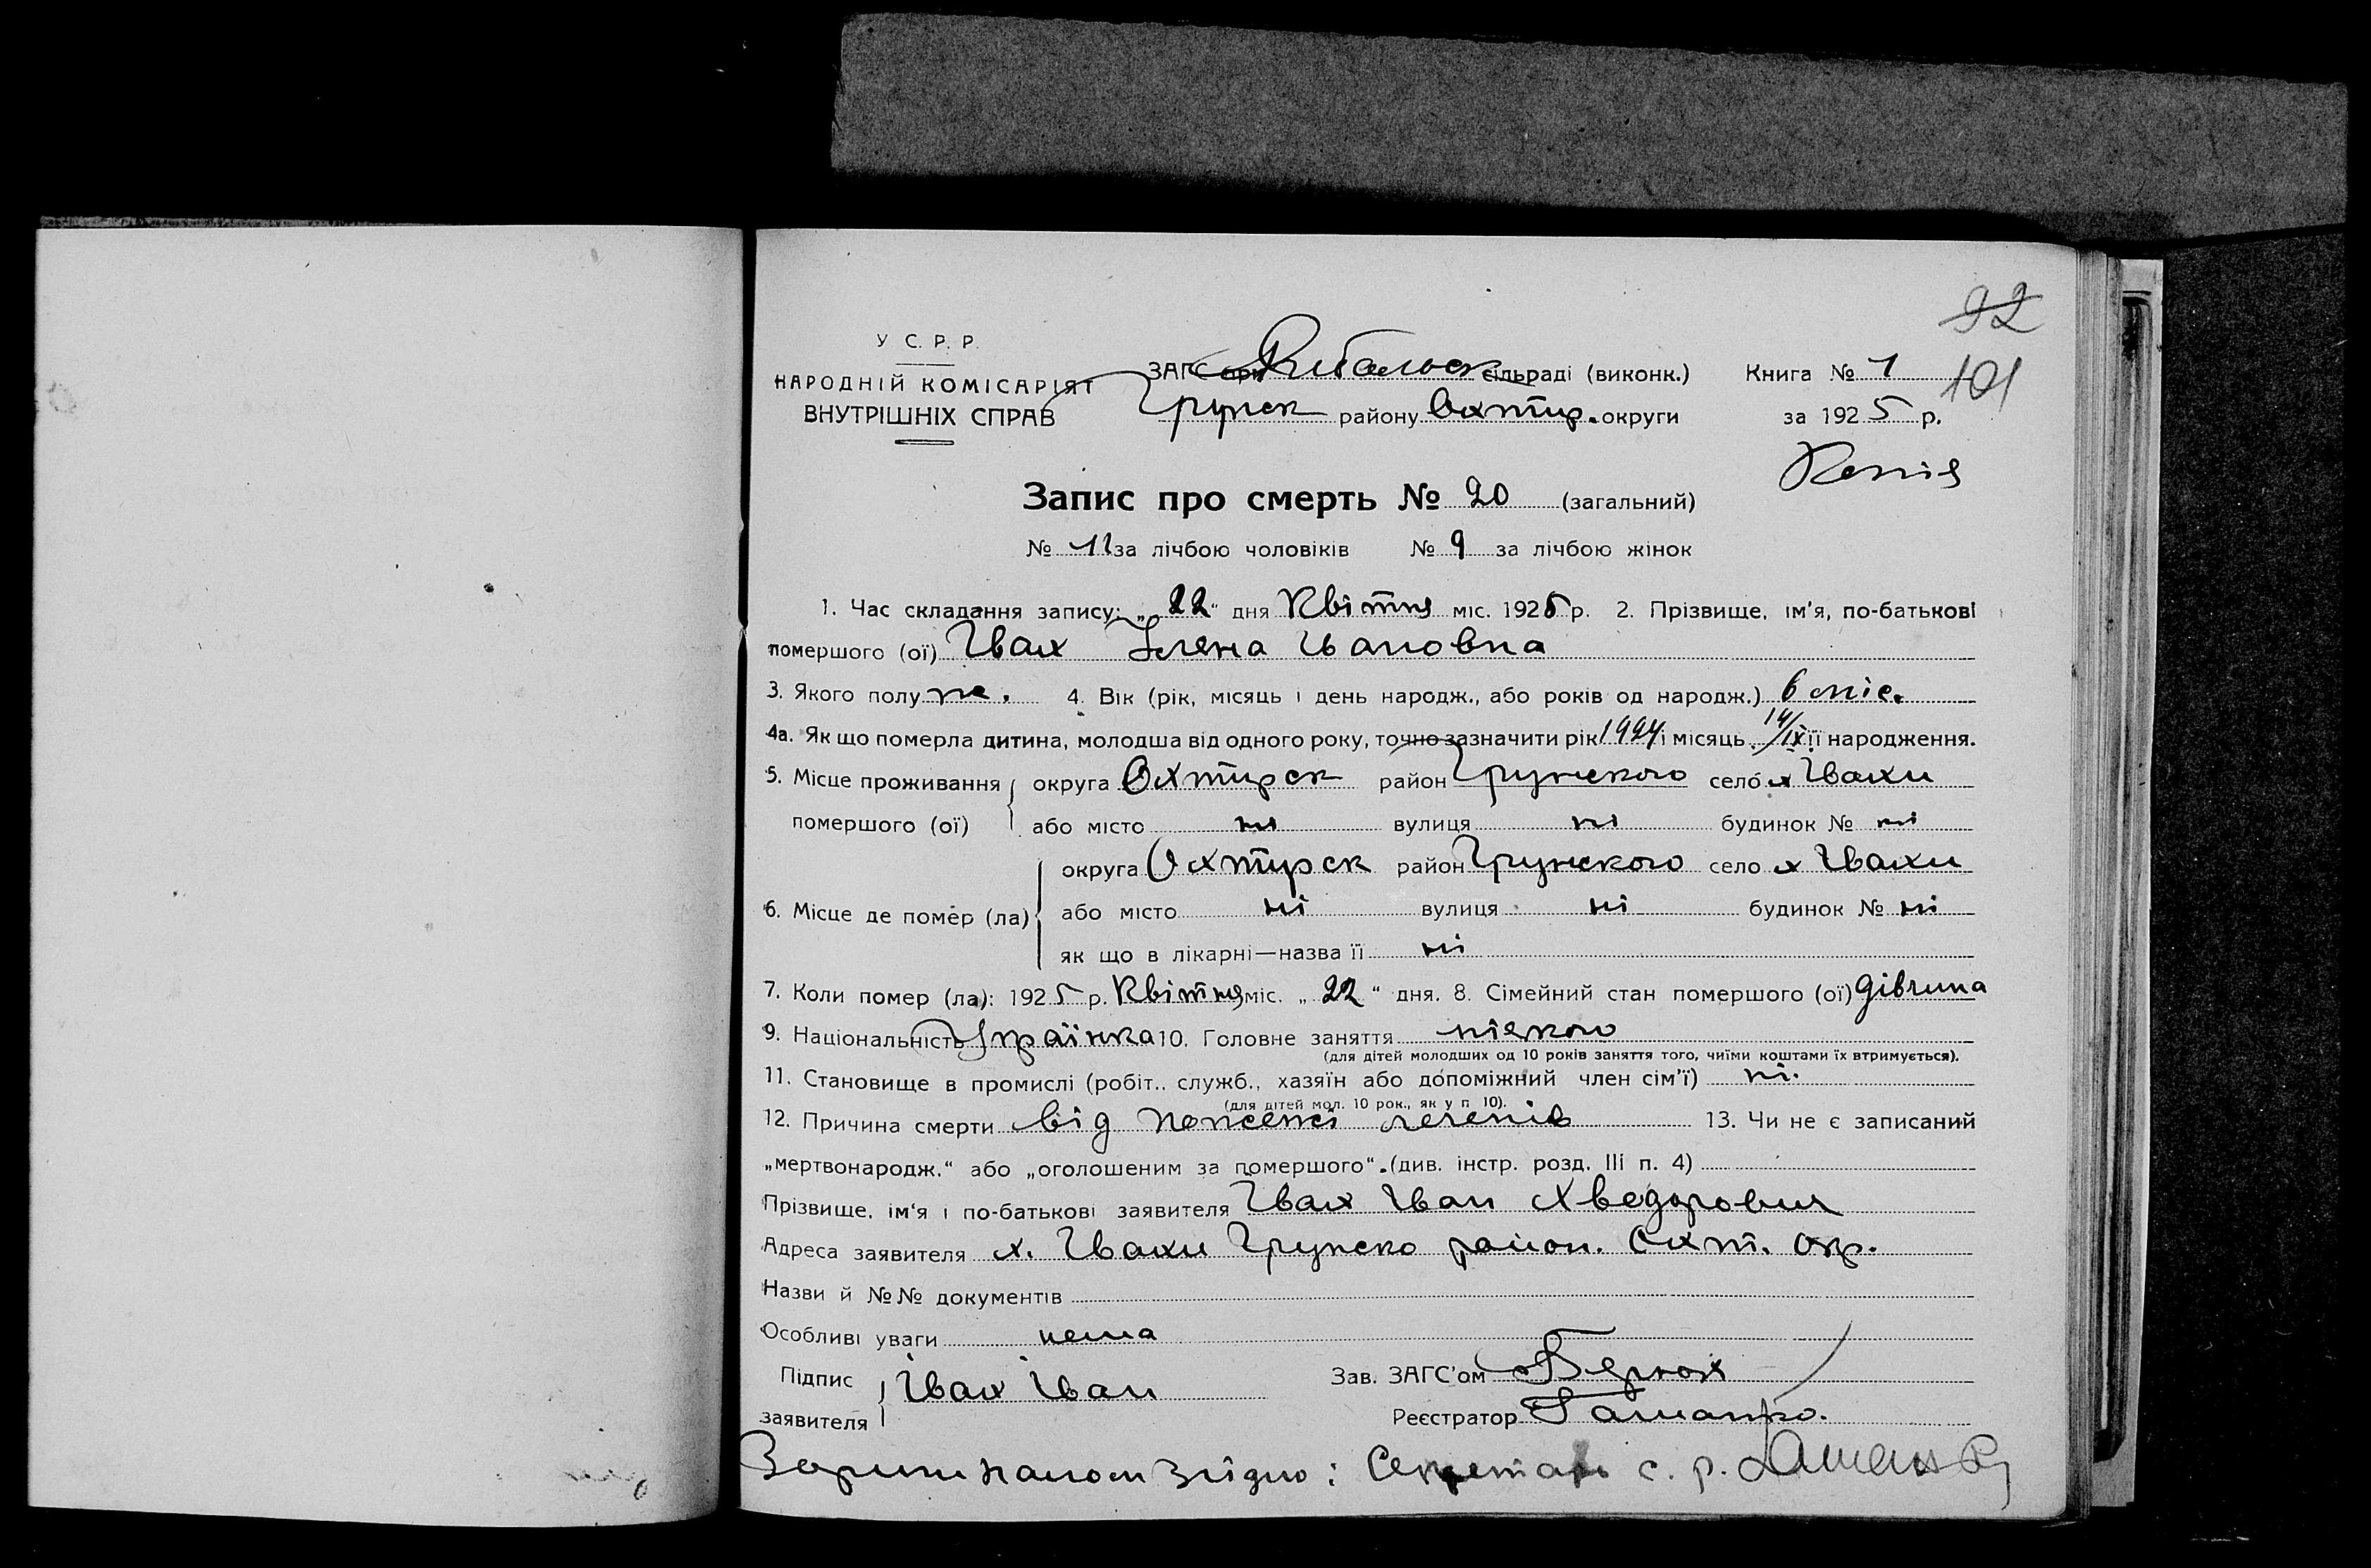 92
101
У С. Р. Р.
НАРОДНІЙ КОМІСАРІЯТ
ВНУТРІШНІХ СПРАВ
ЗАГС при Рибальск сільраді (виконк.)
Грунск району Охтир. округи
Книга № 1
за 1925 р.
Копія
Запис про смерть № 20 (загальний)
№ 11 за лічбою чоловіків № 9 за лічбою жінок
1. Час складання запису: „22“ дня Квітня міс. 1925 р. 2. Прізвище, ім'я, по-батькові
помершого (ої) Івах Ілена Івановна
3. Якого полу ж. 4. Вік (рік, місяць і день народж., або років од народж.) 6 міс.
4а. Як що померла дитина, молодша від одного року, точно зазначити рік 1924 і місяць 14/IX її народження.
5. Місце проживання округа Охтирск район Грунского село х Івахи
помершого (ої) або місто ні вулиця ні будинок № ні
округа Охтирск район Грунского село х Івахи
6. Місце де помер (ла) або місто ні вулиця ні будинок № ні
як що в лікарні—назва її ні
7. Коли помер (ла): 1925 р. Квітня міс. „22“ дня. 8. Сімейний стан помершого (ої) дівчина
9. Національність Украінка 10. Головне заняття ніякого
(для дітей молодших од 10 років заняття того, чиїми коштами їх втримується).
11. Становище в промислі (робіт., служб., хазяїн або допоміжний член сім'ї) ні.
(для дітей мол. 10 рок., як у п 10).
12. Причина смерти від 13. Чи не є записаний
„мертвонародж.“ або „оголошеним за помершого“. (див. інстр. розд. III п. 4)
Прізвище, ім'я і по-батькові заявителя Івах Іван Хведорович
Адреса заявителя х. Івахи Грунско район. Охт. окр.
Назви й №№ документів
Особливі уваги нема
Підпис заявителя Івах Іван
Зав. ЗАГС'ом
Реєстратор
згідно: Секретарь с. р.